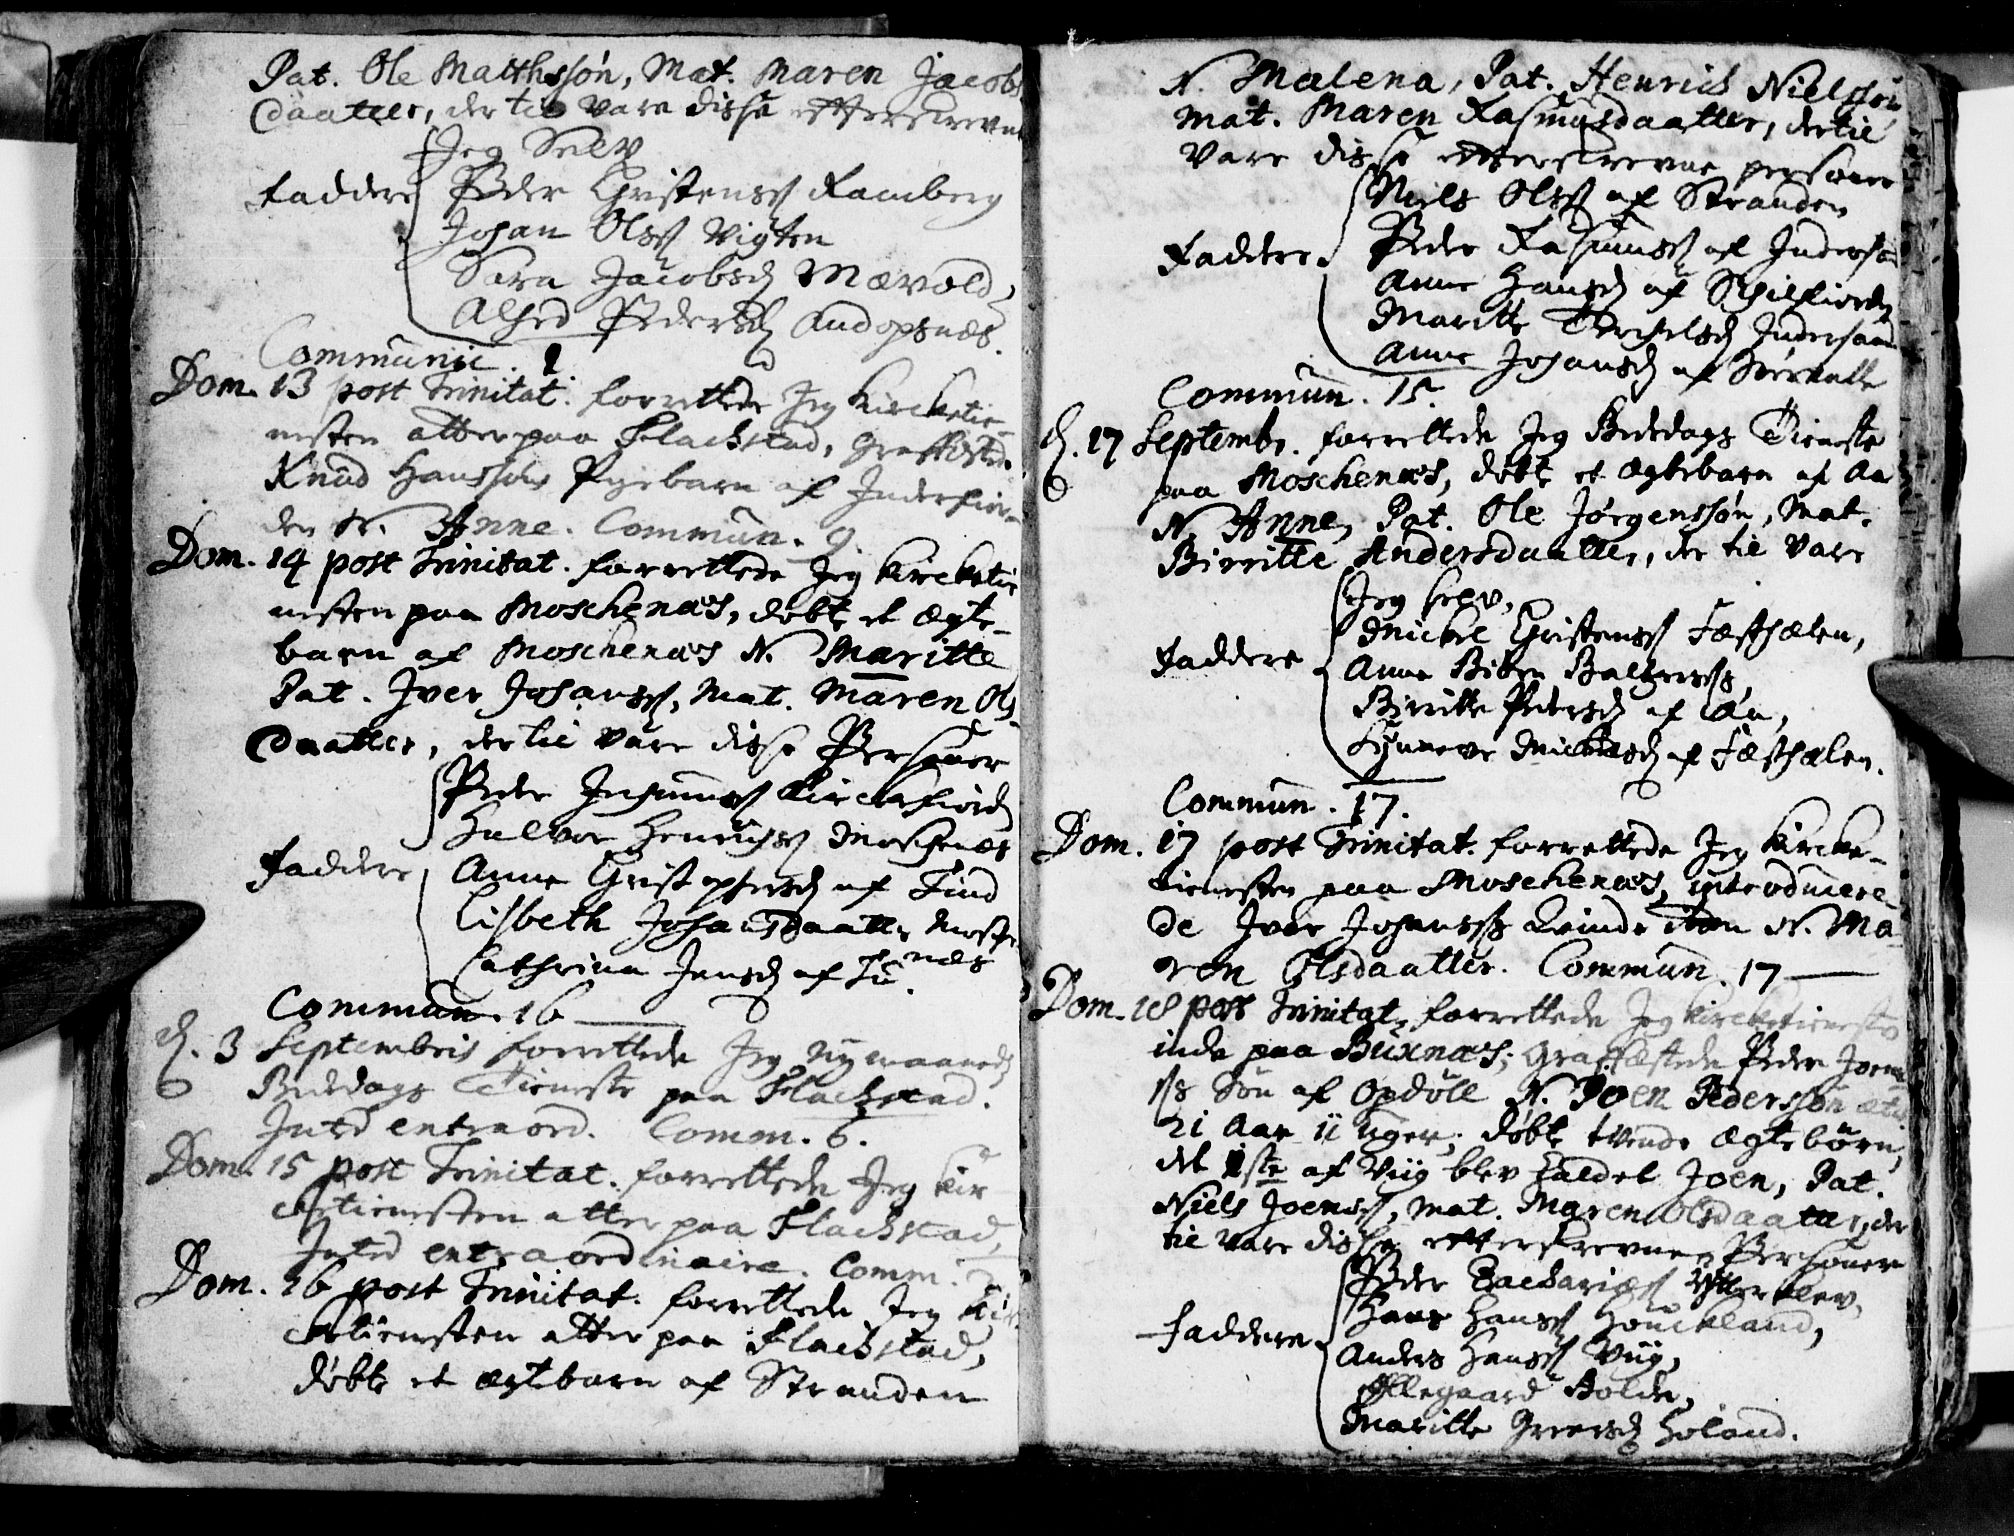 Pat. Ole Matthssøn, Mat. Maren Jacobs
daatter, der til vare disse efterskrevne
Jeg Selv
Faddere Peder Christenss Ramberg
Johan Olss Vigten
Sara Jacobsd Mævold,
Alhed Pedersd Andopsnæs.
Communic.
Dom. 13 post Trinitat. forrettede Jeg Kircketie-
nesten atter paa Flackstad, Graffæstede
Knud Hanssøns Pigebarn af Inderfior-
den N. Anne. Commun. 9.
Dom. 14 post Trinitat. forrettede Jeg Kircketie
nesten paa Moschenæs, døbte et Ægte-
barn af Moschenæs N. Maritte
Pat. Iver Johanss, Mat. Maren Ols
daatter, dertil vare disse Persohner
Peder Kirckefiord
Halvor Henrichss Moschenæs
Faddere Anne Christophersd af Sund
Lisbeth Johansdaatter Mosche
næs
Cathrina Jensd af
Commun. 16
d. 3 Septembris forrettede Jeg Nymaaneds
Bededags Tieneste paa Flackstad.
Intet extraord. Comm. 6.
Dom. 15 post Trinitat. forrettede Jeg Kir
cketienesten atter paa Flackstad,
Intet extraordinaire. Comm.
Dom. 16 post Trinitat. forrettede Jeg Kir
cketienesten atter paa Flackstad,
døbte et ægtebarn af Stranden
N. Malena, Pat. Henrich Nielssøn
Mat. Maren Rasmusdaatter, dertil
vare disse efterskrevne persohner
Niels Olss af Stranden
Faddere Peder Rasmuss af Indersand
Anne Hansd af Schielfiorden
Maritte Indersand
Anne Johansd af
Commun. 15.
d. 17 Septembr. forrettede Jeg Bededags Tieneste
paa Moschenæs, døbte et Ægtebarn af Aa
N. Anne, Pat. Ole Jørgenssøn, Mat.
Birritte Andersdaatter, der til vare
Jeg selv,
Mickel Christenss Fæsthælen,
Faddere Anne Balzerss,
Birritte Pedersd af Aa,
Synneve Mickelsd af Fæsthælen.
Commun. 17.
Dom. 17 post Trinitat. forrettede Jeg Kircke-
tienesten paa Moschenæs, introducere-
de Iver Johanss Qvinde N. Ma-
ren Olsdaatter. Commun. 17
Dom. 18 post Trinitat, forrettede Jeg Kircketieneste
inde paa Buxnæs, Graffæstede Peder Joens
ss Søn af Opdøll N. Joen Pederssøn æt.
21 Aar 11 Uger, døbte tvende Ægtebørn,
det 1ste af Viig blev kaldet Joen, Pat.
Niels Joenss, Mat. Maren Olsdaatter, der
til vare disse efterskrevne Persohner
Peder Zachariæss Ytterklev,
Hans Hanss Houckland,
Faddere Anders Hanss Viig,
Ellegaard Holde,
Maritte Greersd Holand.